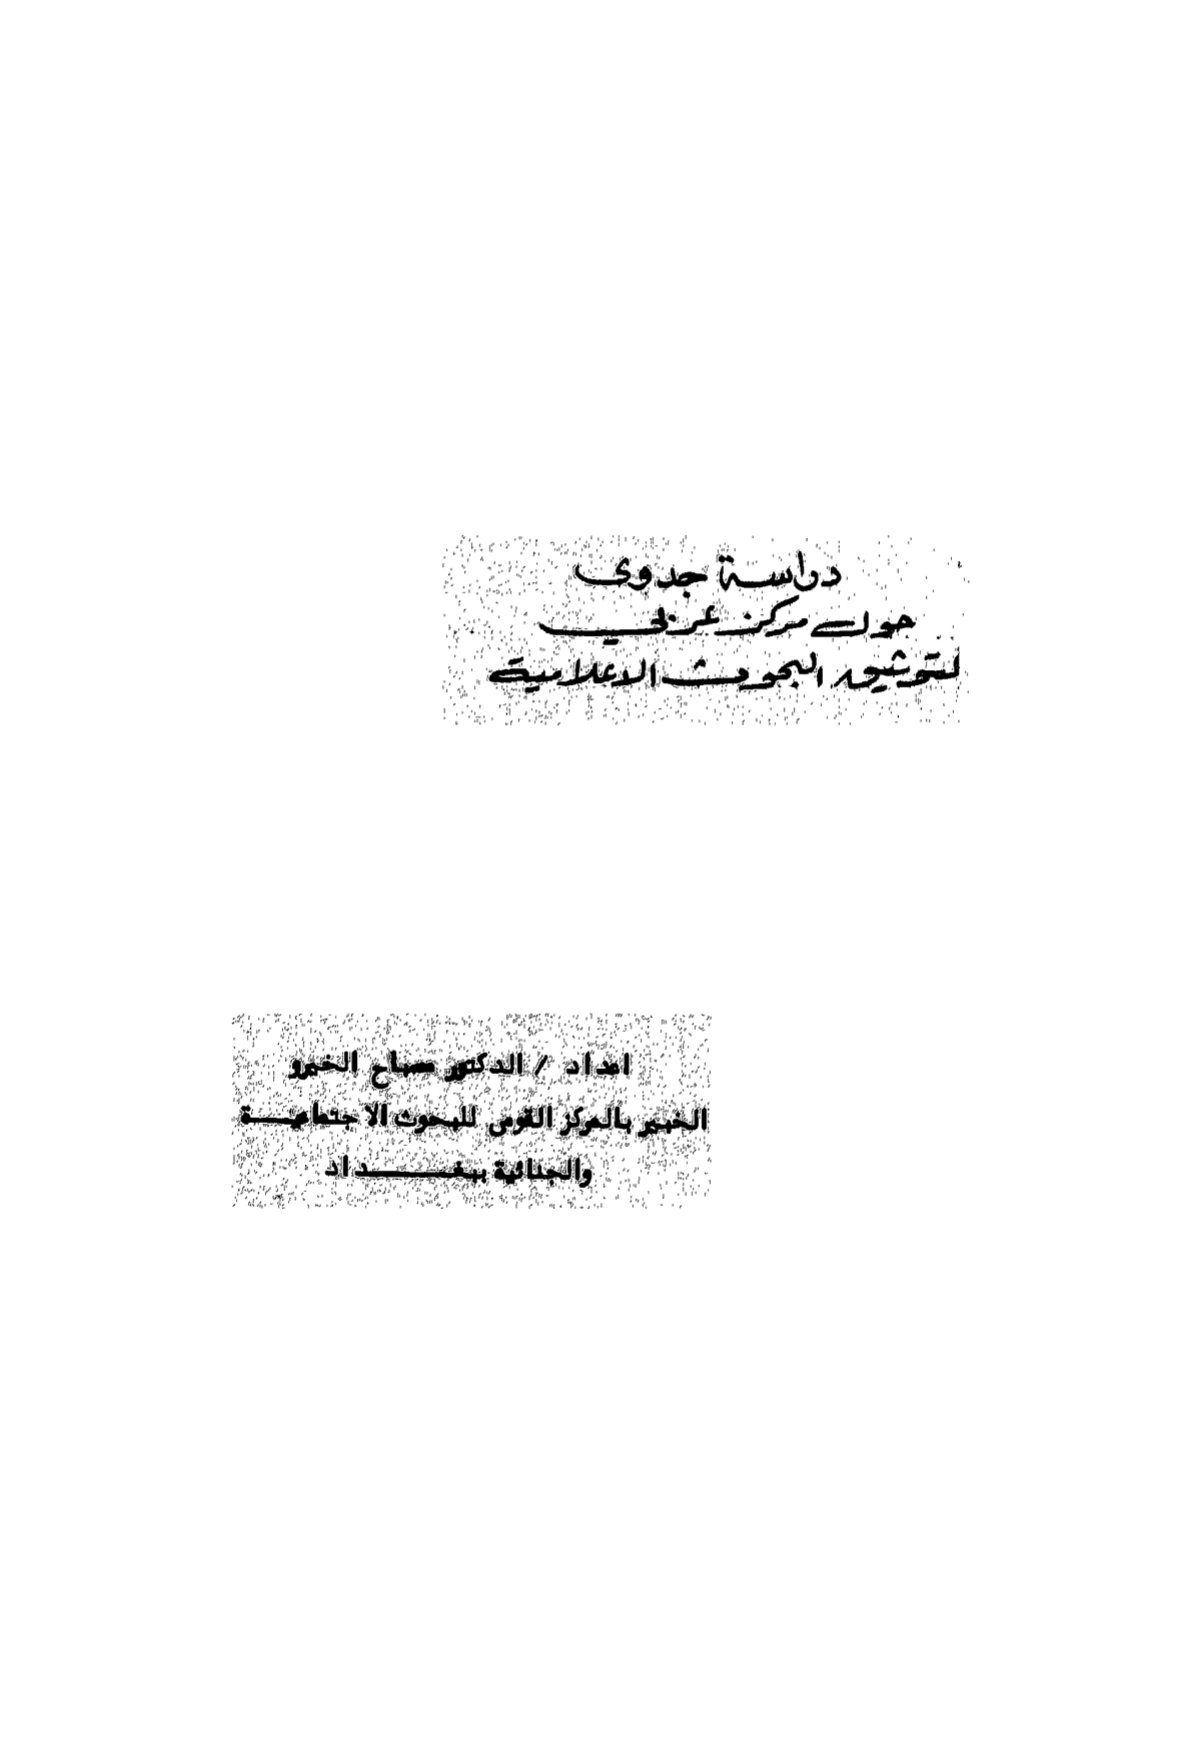 دراسة جدوى
حول مركز عربي
لتوثيق البحوث الاعلامية
اعداد / الدكتور صباح الخيرو
الخبير بالمركز القومى للبحوث الاجتماعية
والجنائية ببغداد